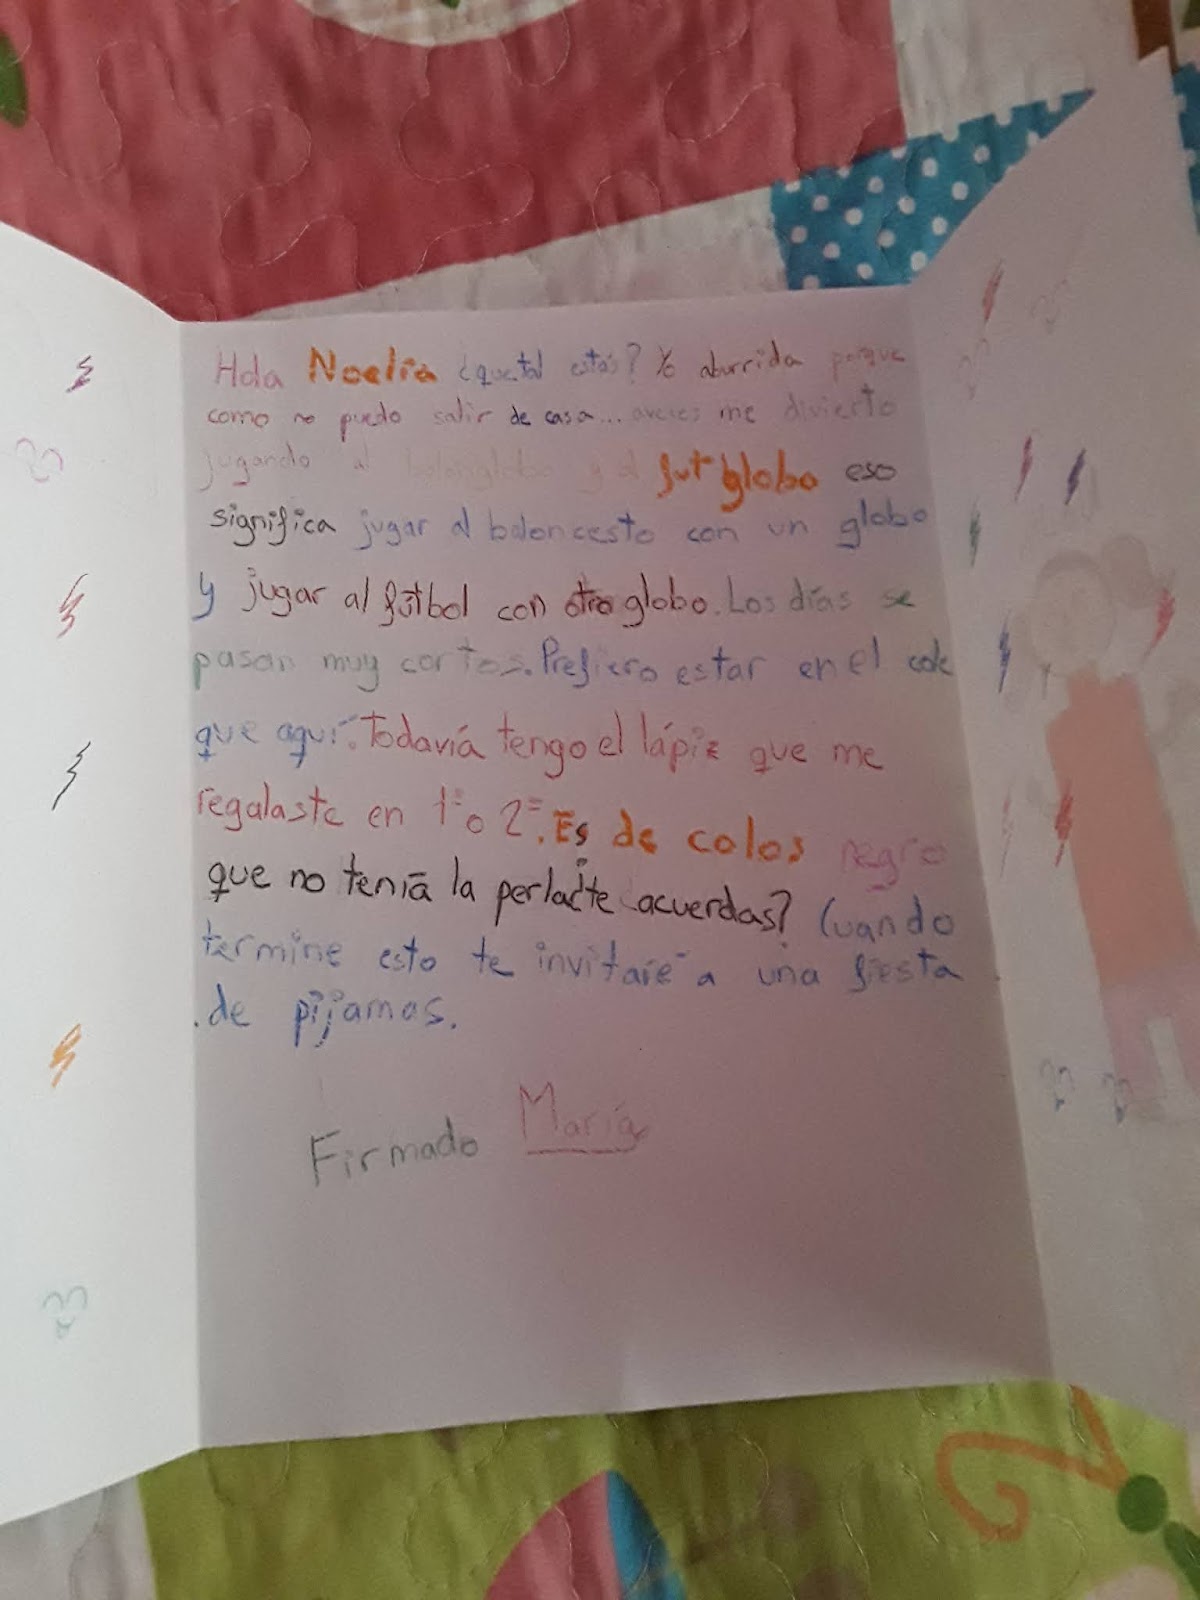 Hola Noelia ¿que tal estás? Yo aburrida porque
como no puedo salir de casa... aveces me divierto
jugando al balonglobo y al futglobo eso
significa jugar al baloncesto con un globo
y jugar al fútbol con otro globo. Los días se
pasan muy cortos. Prefiero estar en el cole
que aquí. Todavía tengo el lápiz que me
regalaste en 1º o 2º. Es de colos negro
que no tenía la perla ¿te acuerdas? Cuando
termine esto te invitaré a una fiesta
de pijamas.
Firmado María